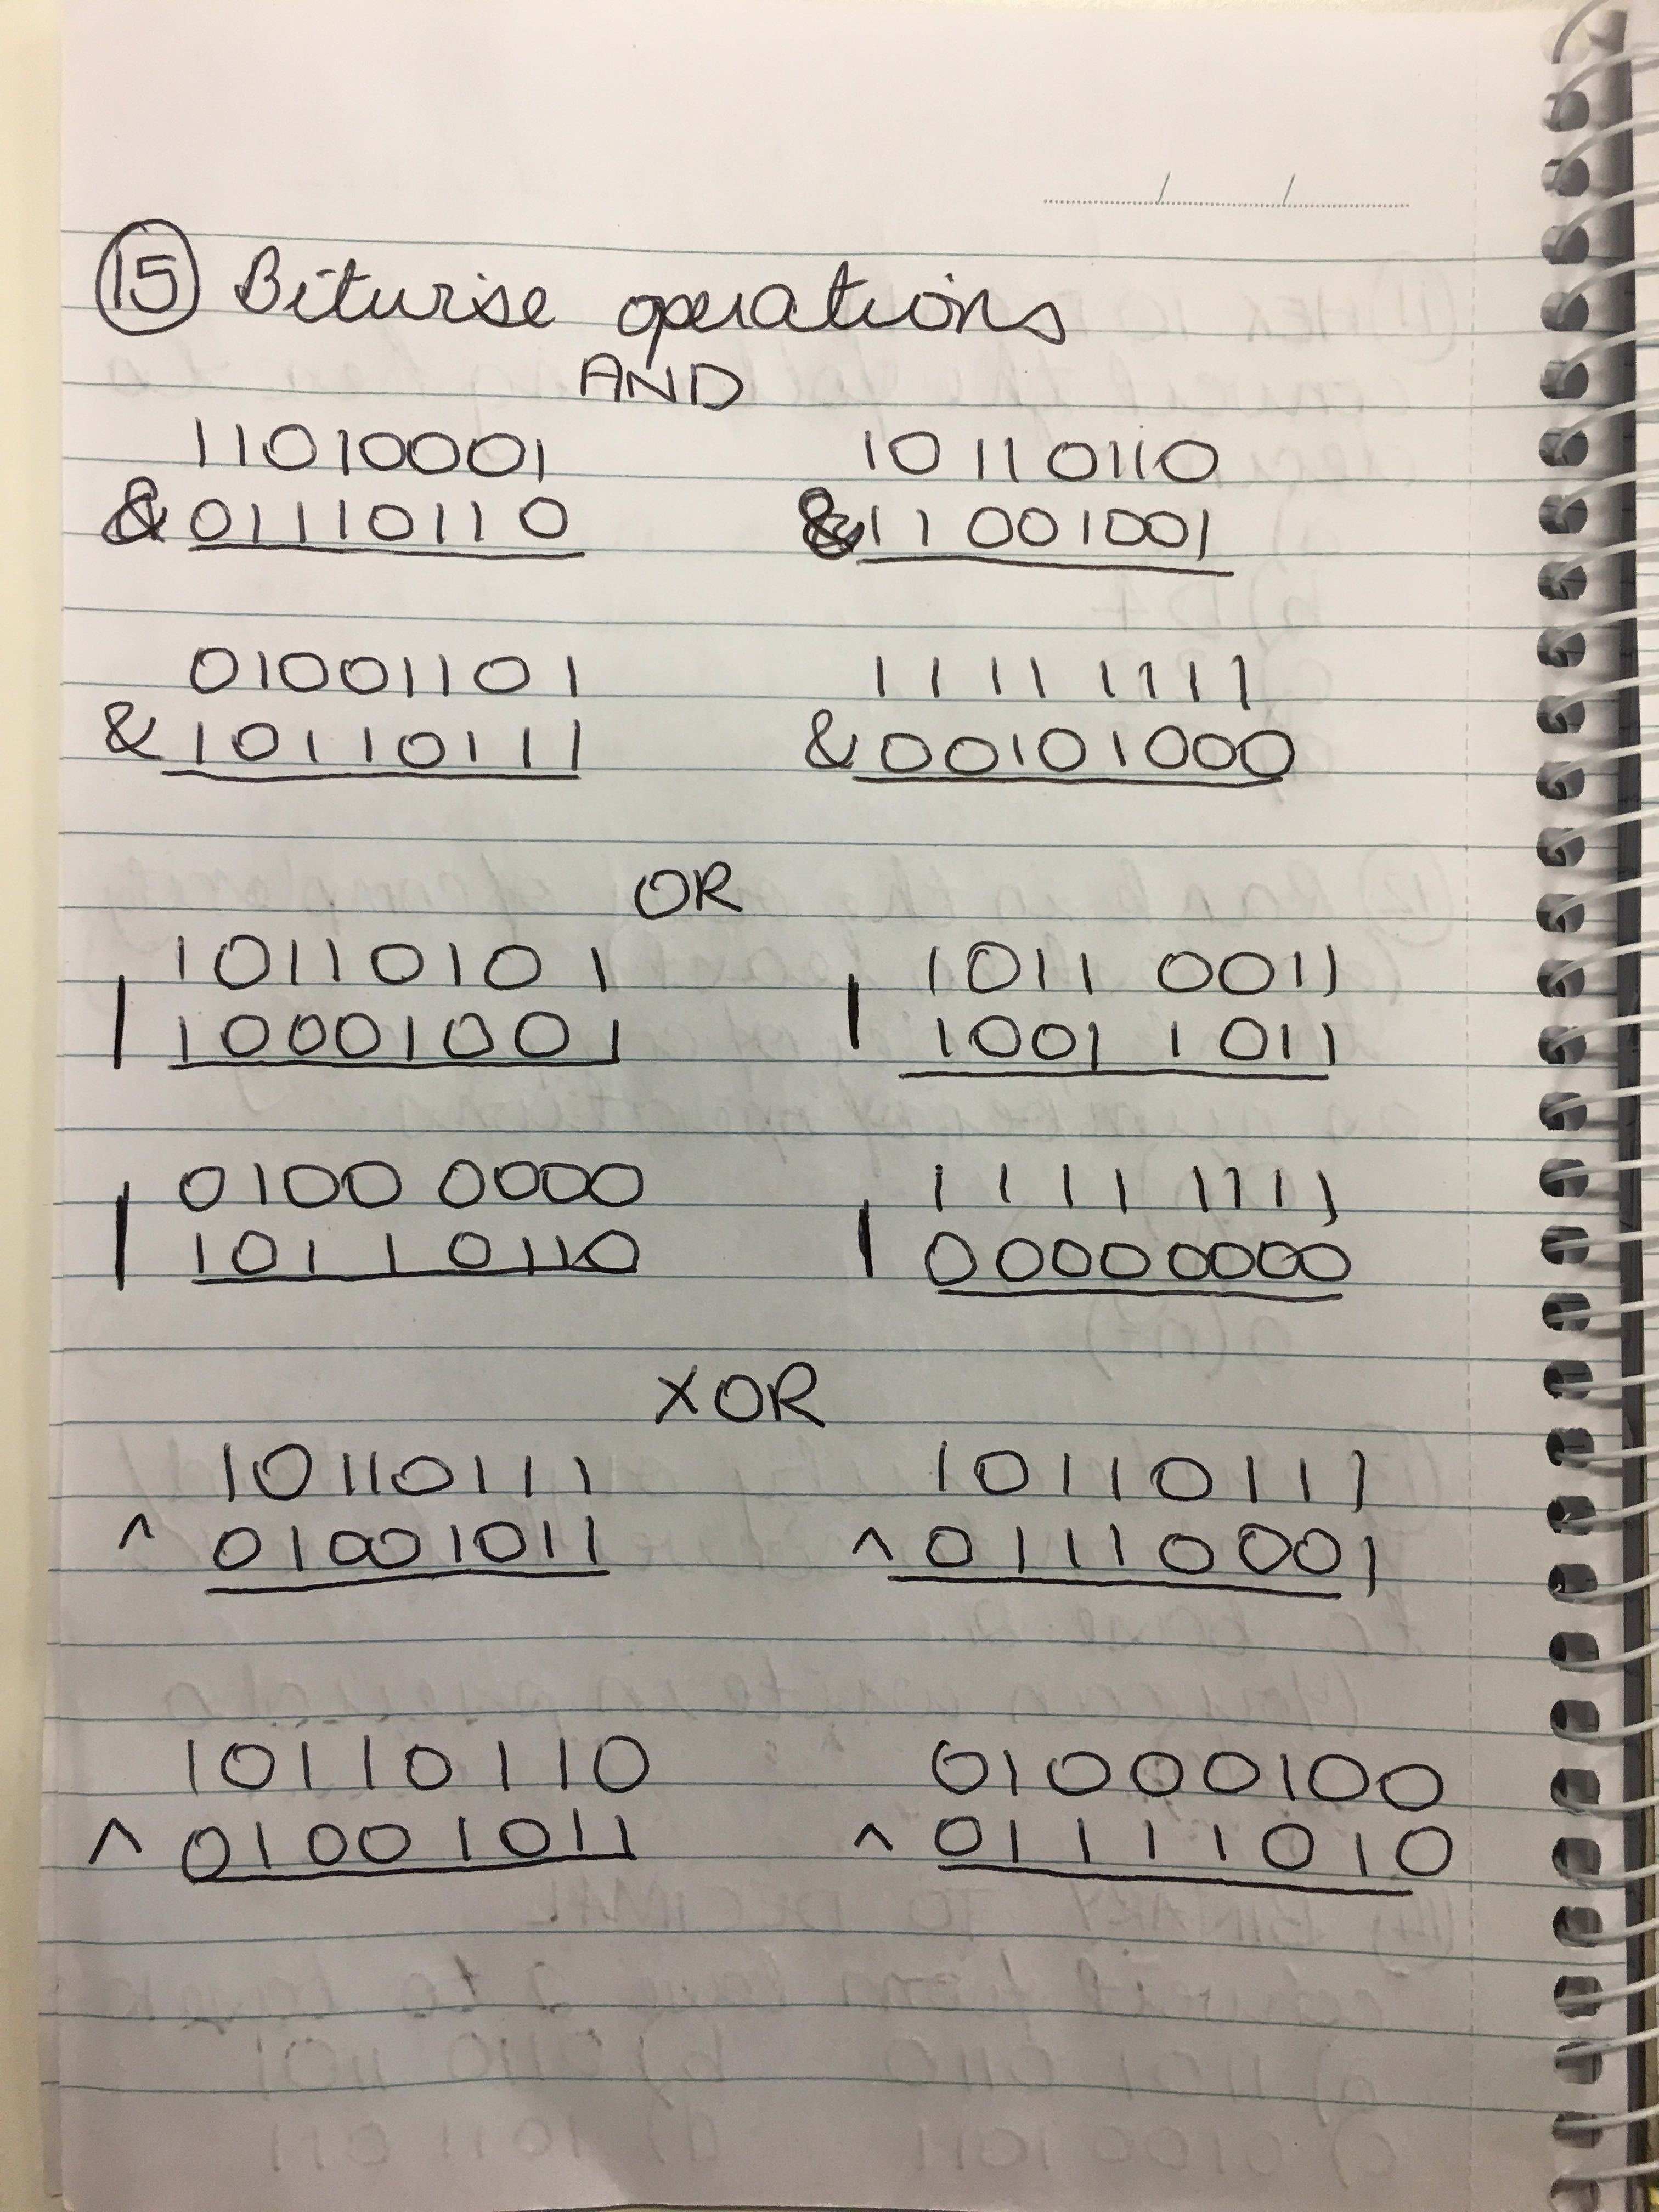 15 Bitwise operations
AND
11010001 10110110
& 01110110 & 11001001
01001101 11111111
& 10110111 & 00101000
OR
10110101 1011 0011
| 10001001 | 1001 1011
0100 0000 1111 1111
| 10110110 | 00000000
XOR
10110111 10110111
^ 01001011 ^ 01110001
10110110 01000100
^ 01001011 ^ 01111010